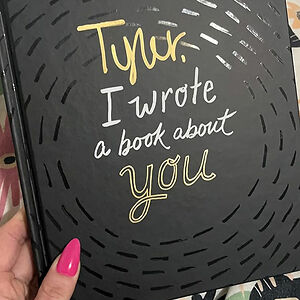 Tyler,
I wrote
a book about
you